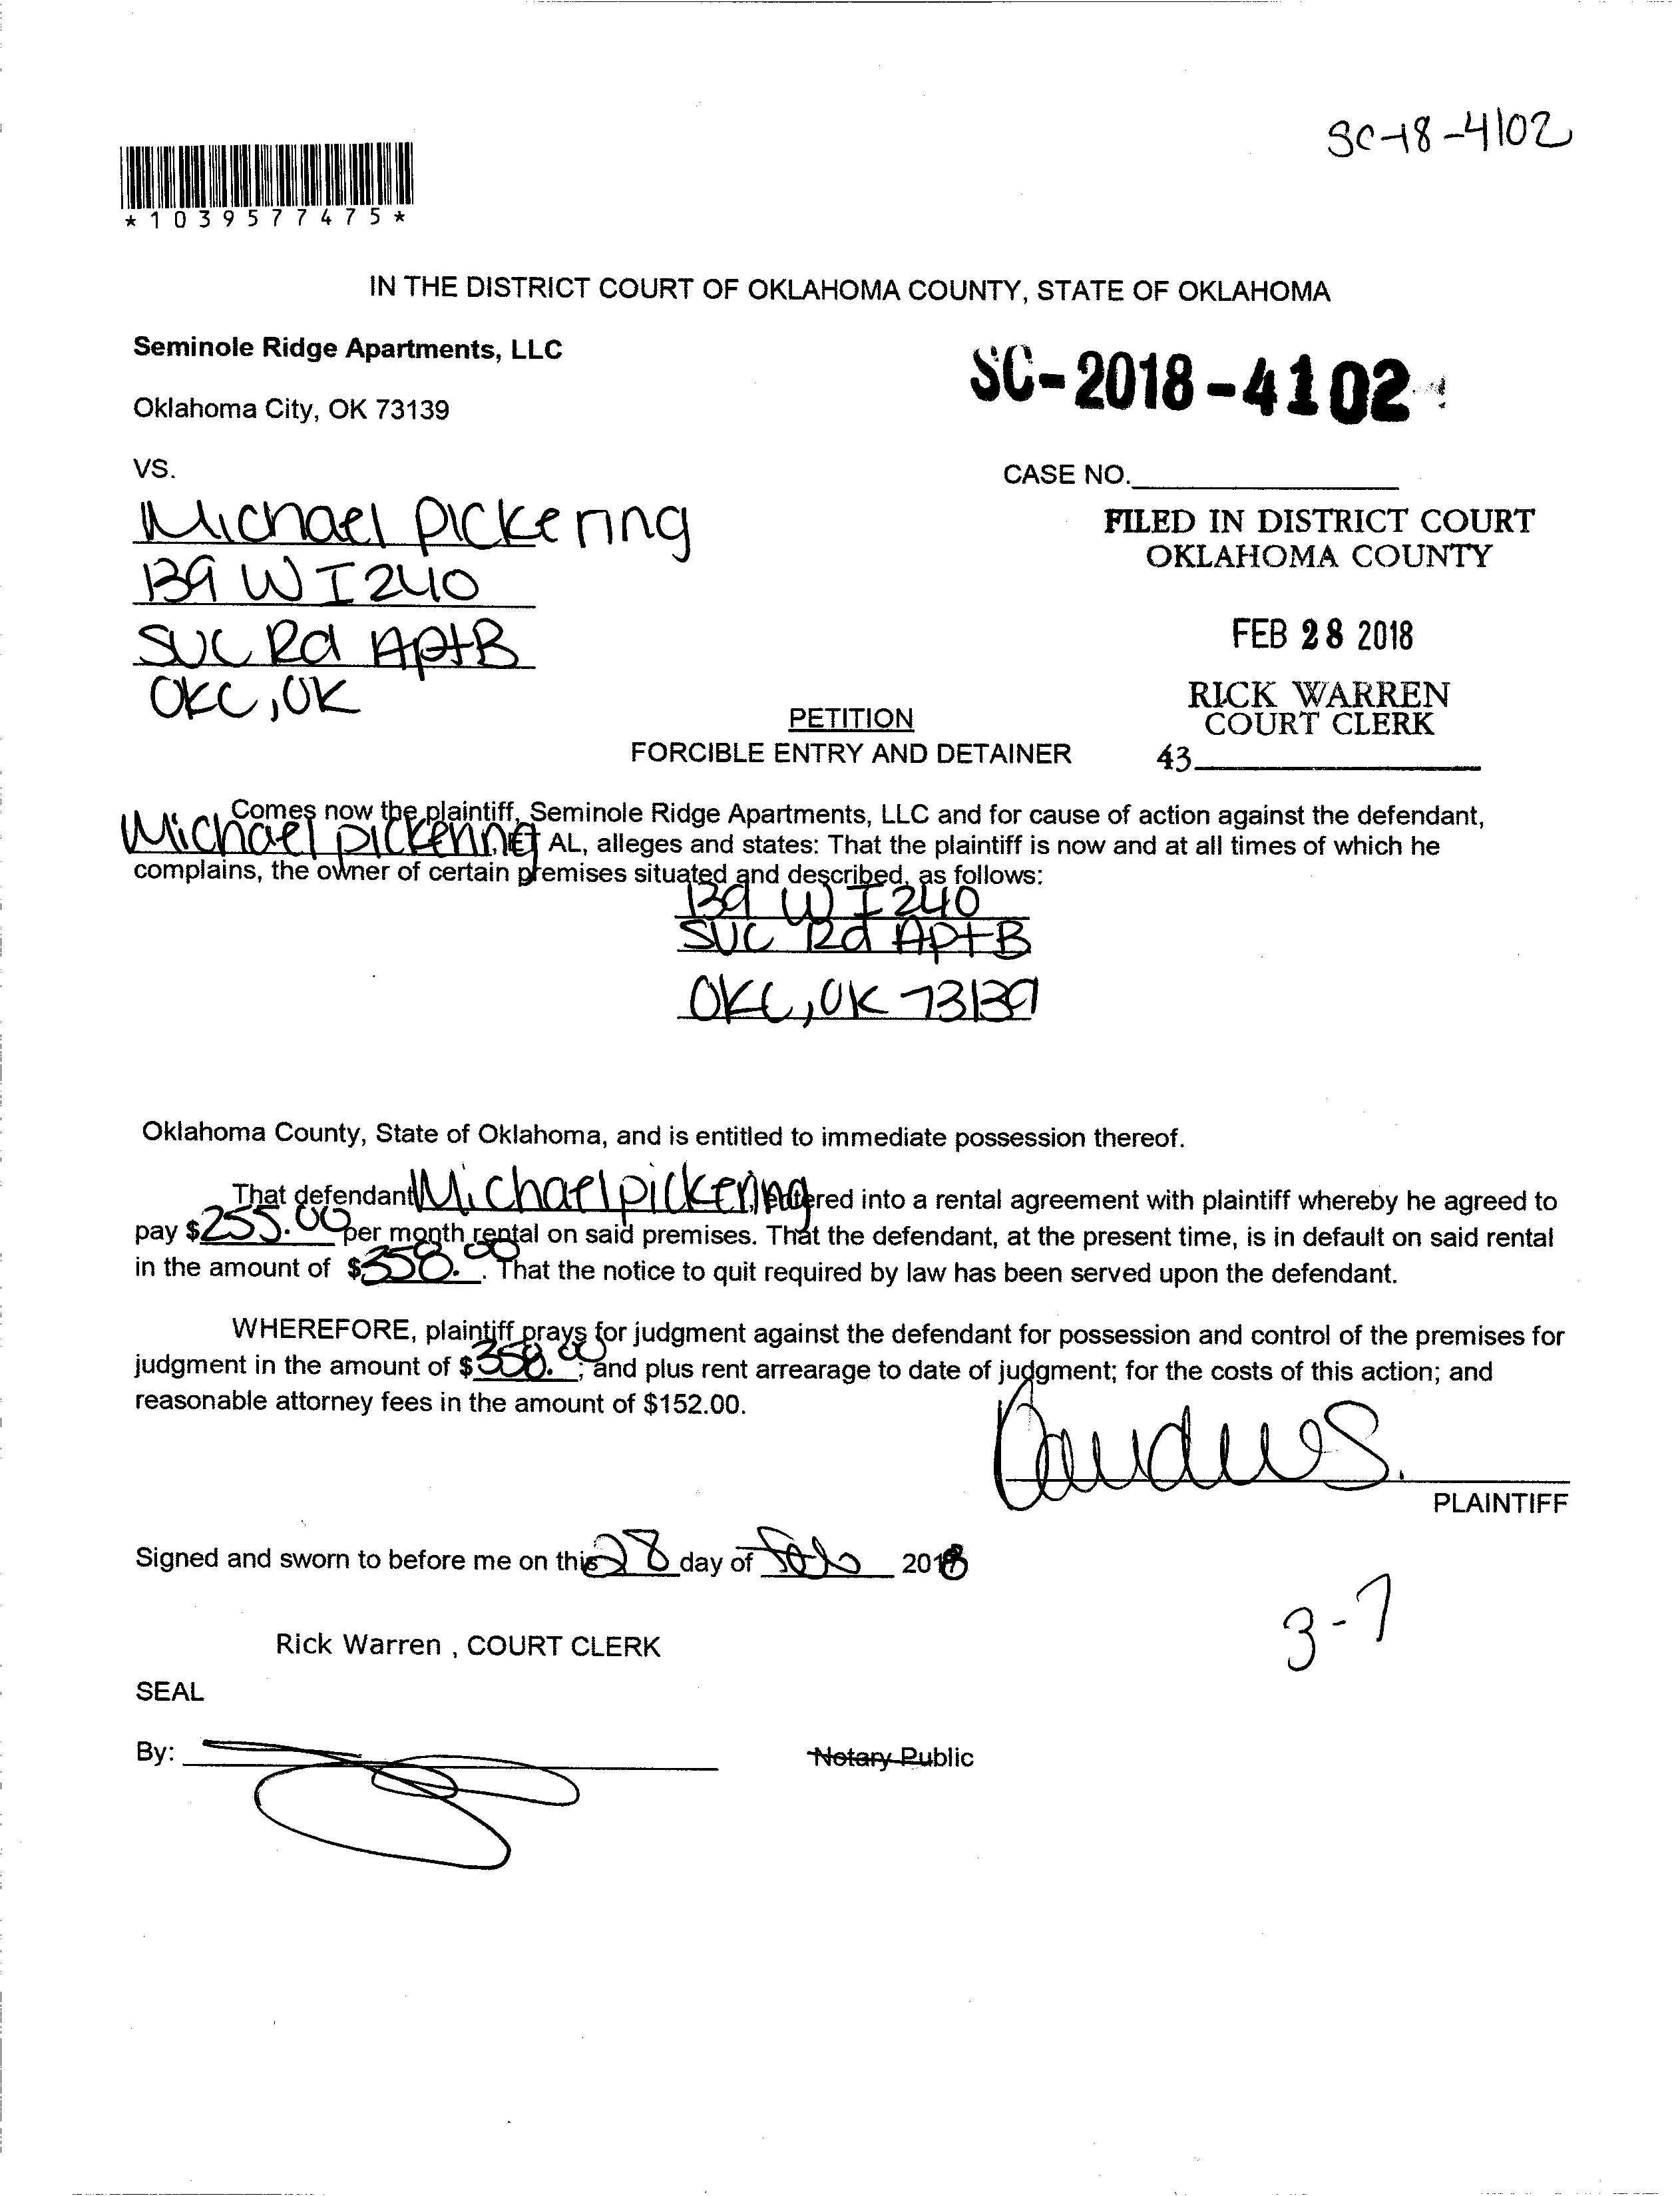 SC-18-4102
*1039577475*
IN THE DISTRICT COURT OF OKLAHOMA COUNTY, STATE OF OKLAHOMA
Seminole Ridge Apartments, LLC
SC-2018-4102
Oklahoma City, OK 73139
VS.
CASE NO.
Michael Pickering
FILED IN DISTRICT COURT
OKLAHOMA COUNTY
139 W I 240
SVC Rd Apt B
FEB 28 2018
OKC, OK
RICK WARREN
COURT CLERK
43
PETITION
FORCIBLE ENTRY AND DETAINER
Comes now the plaintiff, Seminole Ridge Apartments, LLC and for cause of action against the defendant,
Michael Pickering ET AL, alleges and states: That the plaintiff is now and at all times of which he
complains, the owner of certain premises situated and described, as follows:
139 W I 240
SVC Rd Apt B
OKC, OK 73139
Oklahoma County, State of Oklahoma, and is entitled to immediate possession thereof.
That defendant Michael Pickering, entered into a rental agreement with plaintiff whereby he agreed to
pay $255.00 per month rental on said premises. That the defendant, at the present time, is in default on said rental
in the amount of $358.00. That the notice to quit required by law has been served upon the defendant.
WHEREFORE, plaintiff prays for judgment against the defendant for possession and control of the premises for
judgment in the amount of $358.00; and plus rent arrearage to date of judgment; for the costs of this action; and
reasonable attorney fees in the amount of $152.00.
PLAINTIFF
Signed and sworn to before me on this 28 day of Feb 2018
3-7
Rick Warren , COURT CLERK
SEAL
By:
Notary Public